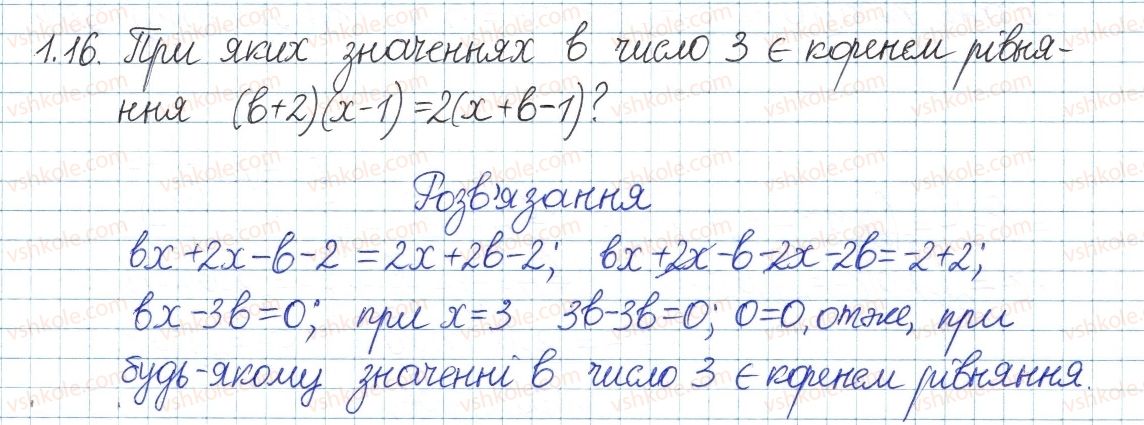 1.16. При яких значеннях в число 3 є коренем рівня-
ння (в+2)(х-1)=2(х+в-1)?
Розв'язання
вх+2х-в-2=2х+2в-2; вх+2х-в-2х-2в=-2+2;
вх-3в=0; при х=3 3в-3в=0; 0=0, отже, при
будь-якому значенні в число 3 є коренем рівняння.